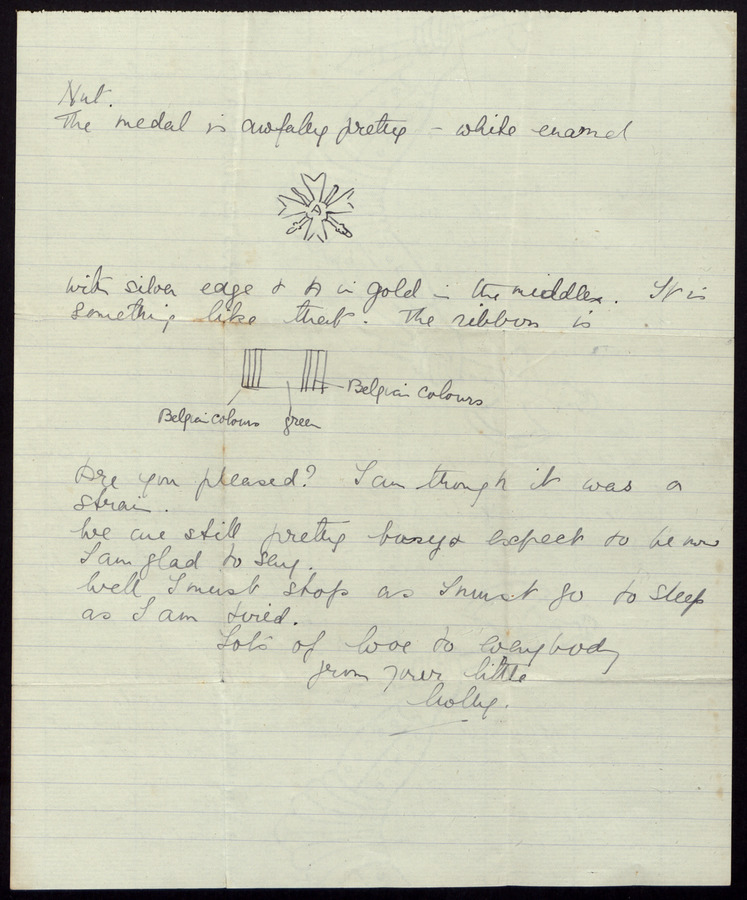 Nut.
The medal is awfully pretty – white enamel
A
with silver edge & A in gold in the middle. It is
something like that. The ribbon is
Belgian colours
Belgian colours green
Are you pleased? I am though it was a
strain.
We are still pretty busy & expect to be now
I am glad to say.
Well I must stop as I must go to sleep
as I am tired.
Lots of love to everybody
from your little
Molly.